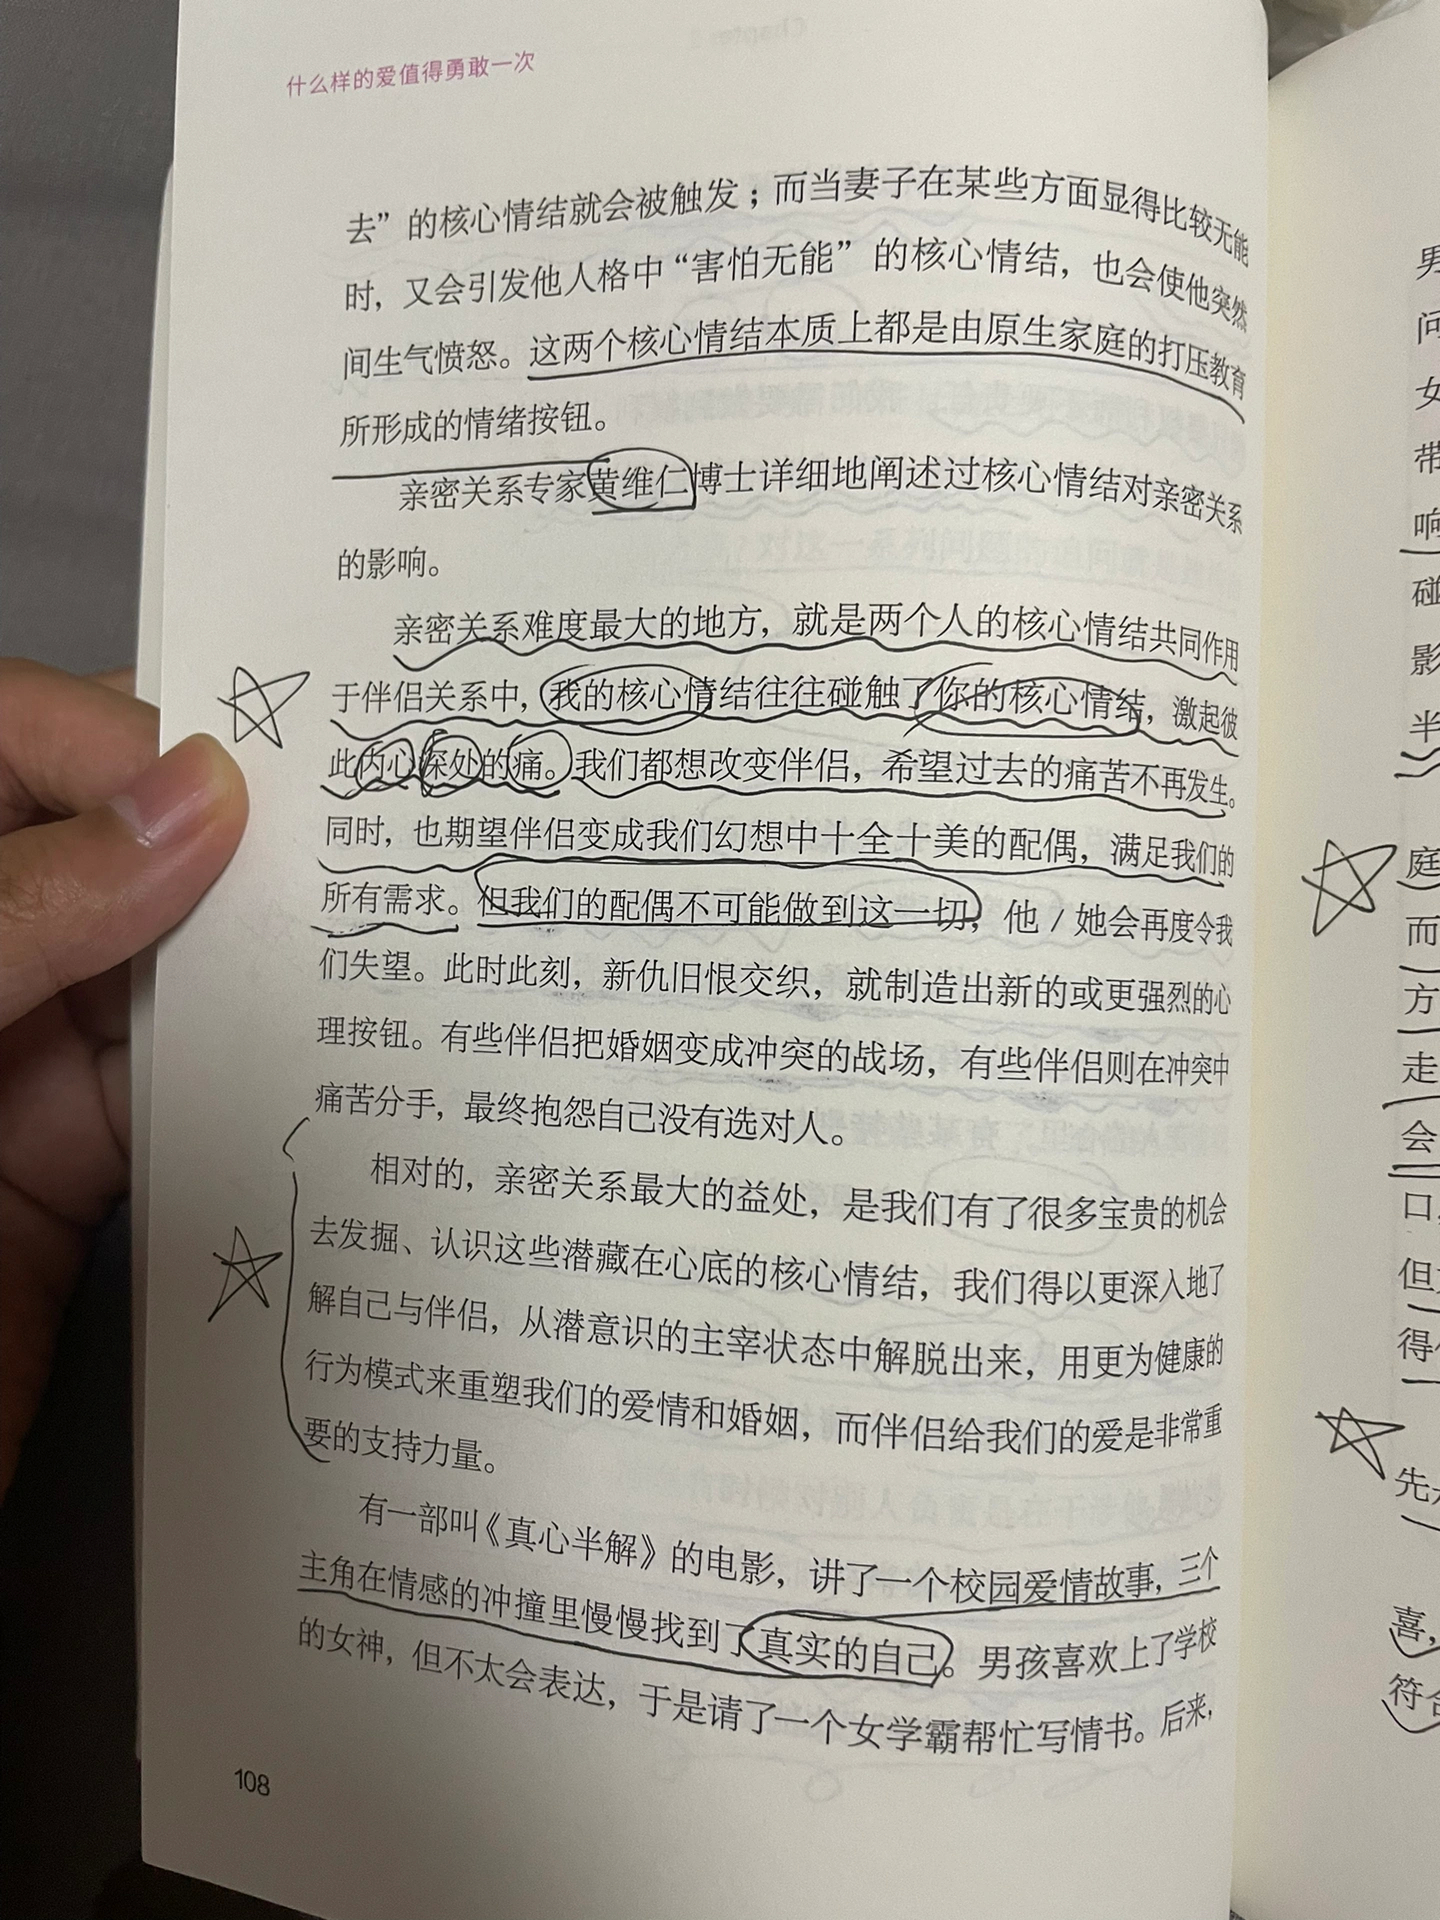 什么样的爱值得勇敢一次
去”的核心情结就会被触发；而当妻子在某些方面显得比较无能
时，又会引发他人格中“害怕无能”的核心情结，也会使他突然
间生气愤怒。这两个核心情结本质上都是由原生家庭的打压教育
所形成的情绪按钮。
亲密关系专家黄维仁博士详细地阐述过核心情结对亲密关系
的影响。
亲密关系难度最大的地方，就是两个人的核心情结共同作用
于伴侣关系中，我的核心情结往往碰触了你的核心情结，激起彼
此内心深处的痛。我们都想改变伴侣，希望过去的痛苦不再发生。
同时，也期望伴侣变成我们幻想中十全十美的配偶，满足我们的
所有需求。但我们的配偶不可能做到这一切，他／她会再度令我
们失望。此时此刻，新仇旧恨交织，就制造出新的或更强烈的心
理按钮。有些伴侣把婚姻变成冲突的战场，有些伴侣则在冲突中
痛苦分手，最终抱怨自己没有选对人。
相对的，亲密关系最大的益处，是我们有了很多宝贵的机会
去发掘、认识这些潜藏在心底的核心情结，我们得以更深入地了
解自己与伴侣，从潜意识的主宰状态中解脱出来，用更为健康的
行为模式来重塑我们的爱情和婚姻，而伴侣给我们的爱是非常重
要的支持力量。
有一部叫《真心半解》的电影，讲了一个校园爱情故事，三个
主角在情感的冲撞里慢慢找到了真实的自己。男孩喜欢上了学校
的女神，但不太会表达，于是请了一个女学霸帮忙写情书。后来，
108
男
问
女
带
响
碰
影
半
庭
而
方
走
会
口，
但
得
先
喜，
符合